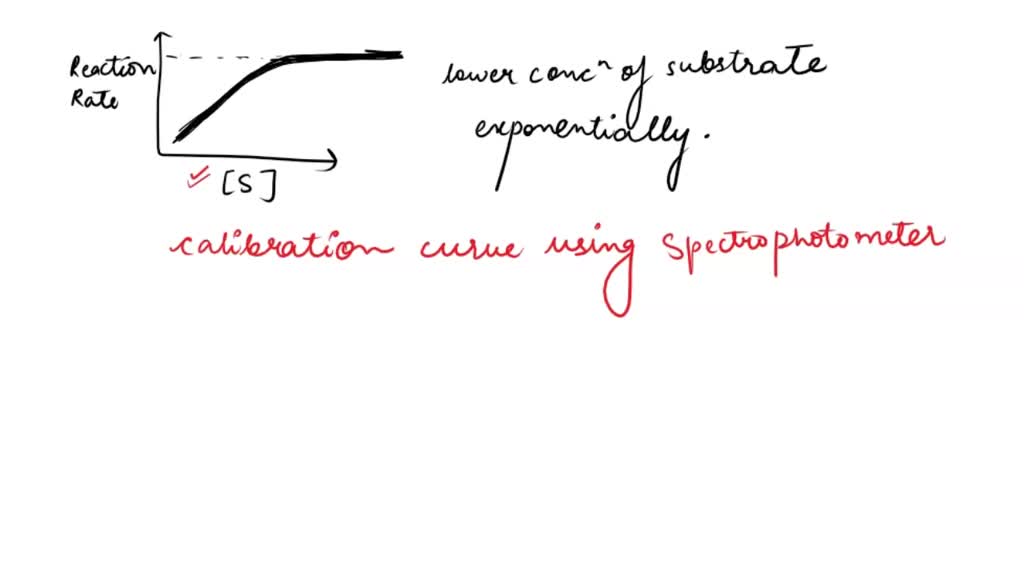 Reaction
Rate
[S]
lower concⁿ of substrate
exponentially.
calibration curve using Spectrophotometer